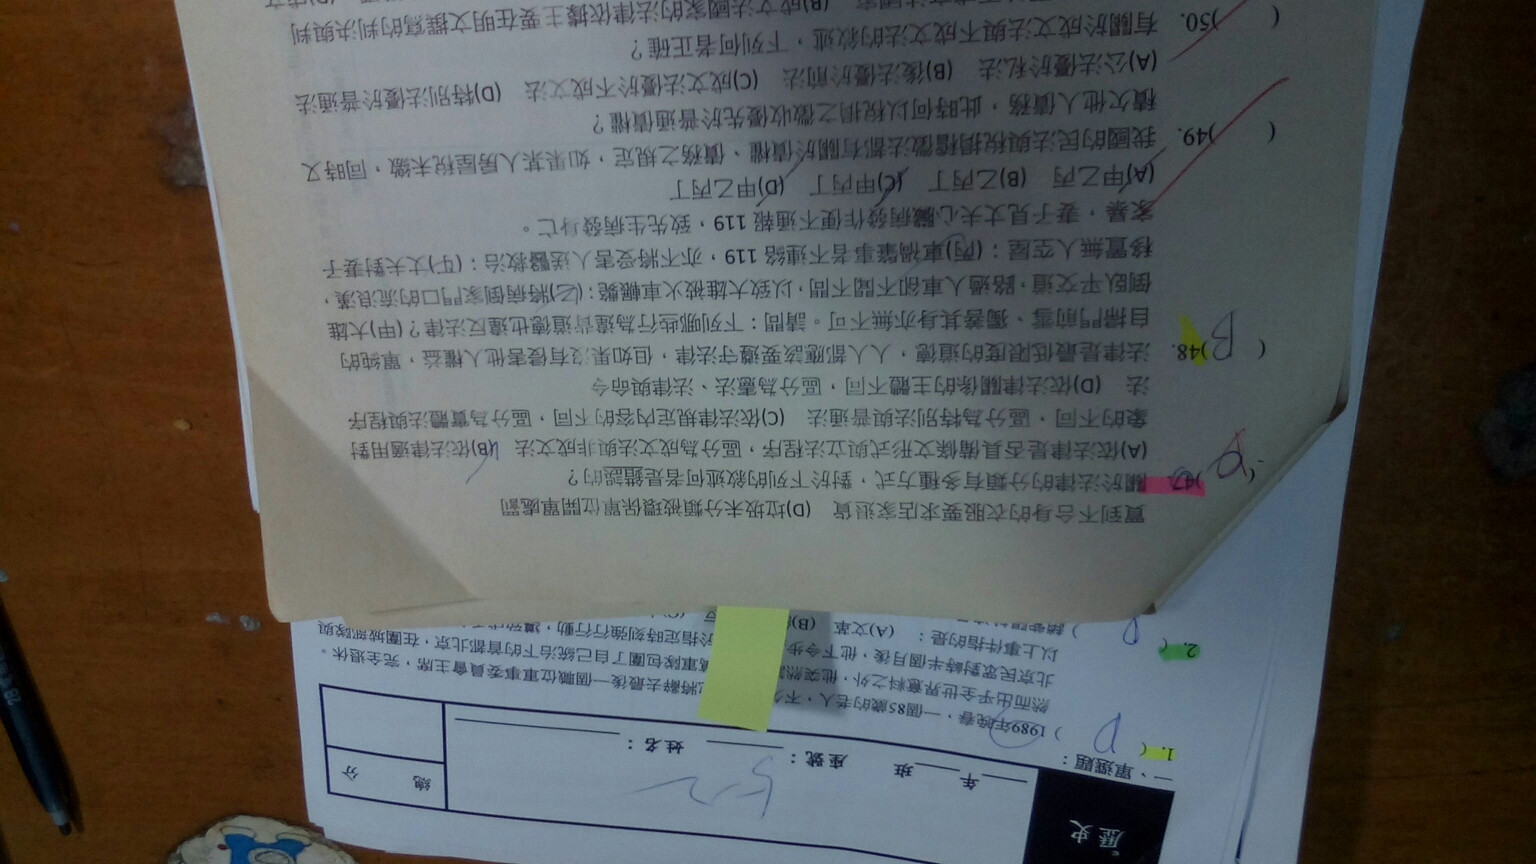 買到不合身的衣服要求店家退貨 (D)垃圾未分類被環保單位開單處罰
( )47. 關於法律的分類有多種方式，對於下列的敘述何者是錯誤的？
(A)依法律是否具備條文形式與立法程序，區分為成文法與非成文法 (B)依法律適用對
象的不同，區分為特別法與普通法 (C)依法律規定內容的不同，區分為實體法與程序
法 (D)依法律關係的主體不同，區分為憲法、法律與命令
( B )48. 法律是最低限度的道德，人人都應該要遵守法律，但如果沒有侵害他人權益，單純的
自掃門前雪、獨善其身亦無不可。請問：下列哪些行為違背道德也違反法律？(甲)大雄
倒臥平交道，路過人車卻不聞不問，以致大雄被火車輾斃；(乙)將病倒家門口的流浪漢，
移置無人空屋；(丙)車禍肇事者不連絡 119，亦不將受害人送醫救治；(丁)丈夫對妻子
家暴，妻子見丈夫心臟病發作便不通報 119，致先生病發身亡。
(A)甲乙丙 (B)乙丙丁 (C)甲丙丁 (D)甲乙丙丁
( )49. 我國的民法與稅捐稽徵法都有關於債權、債務之規定，如果某人房屋稅未繳，同時又
積欠他人債務，此時何以稅捐之徵收優先於普通債權？
(A)公法優於私法 (B)後法優於前法 (C)成文法優於不成文法 (D)特別法優於普通法
( )50. 有關於成文法與不成文法的敘述，下列何者正確？
(B)成文法國家的法律依據主要在明文撰寫的判決與判
歷史
年 班 座號： 姓名：
總 分
一、單選題：
1. ( D ) 1989年晚春，一個85歲的老人，不
將辭去最後一個職位軍事委員會主席，完全退休。
然而出乎全世界意料之外，他突然
軍隊包圍了自己統治下的首都北京，在圍城部隊與
北京民眾對峙半個月後，他下令步
於指定時刻強行行動，
以上事件的指的是： (A)文革 (B)
2. ( D )